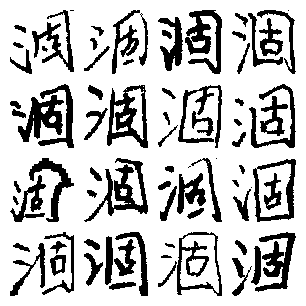 涸涸涸涸
涸涸涸涸
涸涸涸涸
涸涸涸涸